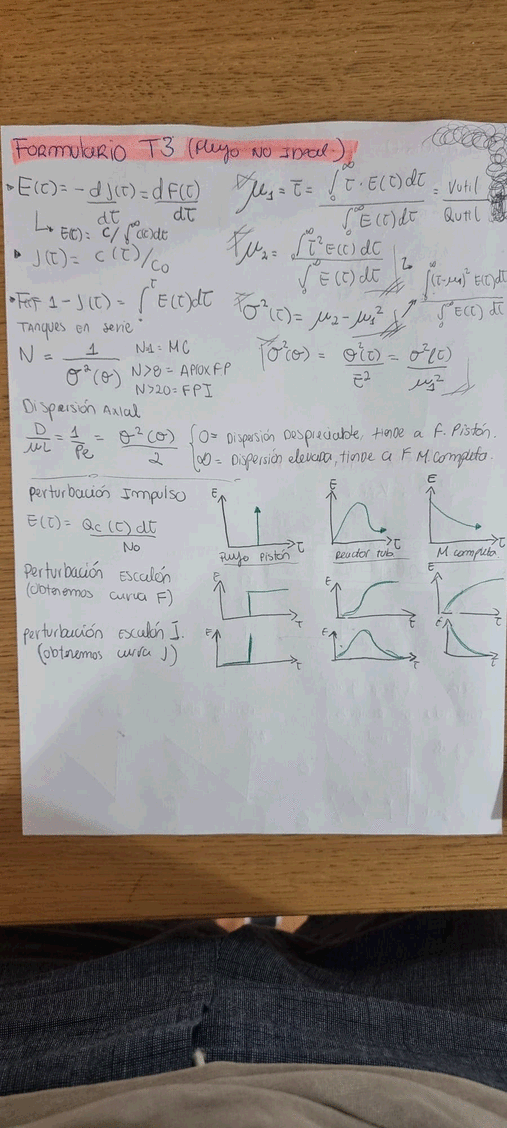 FORMULARIO T3 (Flujo NO IDEAL.)
E(τ) = - dJ(τ)/dτ = dF(τ)/dτ
↳ E(τ) = C/∫₀^∞ C(τ)dτ
J(τ) = C(τ)/C₀
1 - J(τ) = ∫₀^τ E(τ)dτ
μ₁ = τ̄ = ∫₀^∞ τ · E(τ) dτ / ∫₀^∞ E(τ)dτ = Vutil / Qutil
μ₂ = ∫₀^∞ τ² E(τ) dτ / ∫₀^∞ E(τ) dτ
σ²(τ) = μ₂ - μ₁²
∫₀^∞ (τ-μ₁)² E(τ)dτ / ∫₀^∞ E(τ) dτ
σ²(θ) = σ²(τ)/τ̄² = σ²(τ)/μ₁²
Tanques en serie
N = 1/σ²(θ)
N=1 = MC
N>8 = APROX FP
N>20 = FPI
Dispersión Axial
D/uL = 1/Pe = σ²(θ)/2
0 = Dispersión Despreciable, tiende a F. Pistón.
∞ = Dispersión elevada, tiende a F M. Completa.
Perturbación Impulso
E(τ) = Qc(τ)dτ / No
E τ
E τ
E τ
Flujo Pistón
Reactor tubo
M completa
Perturbación Escalón
(obtenemos curva F)
E τ
E τ
E τ
Perturbación Escalón I.
(obtenemos curva J)
E τ
E τ
E τ